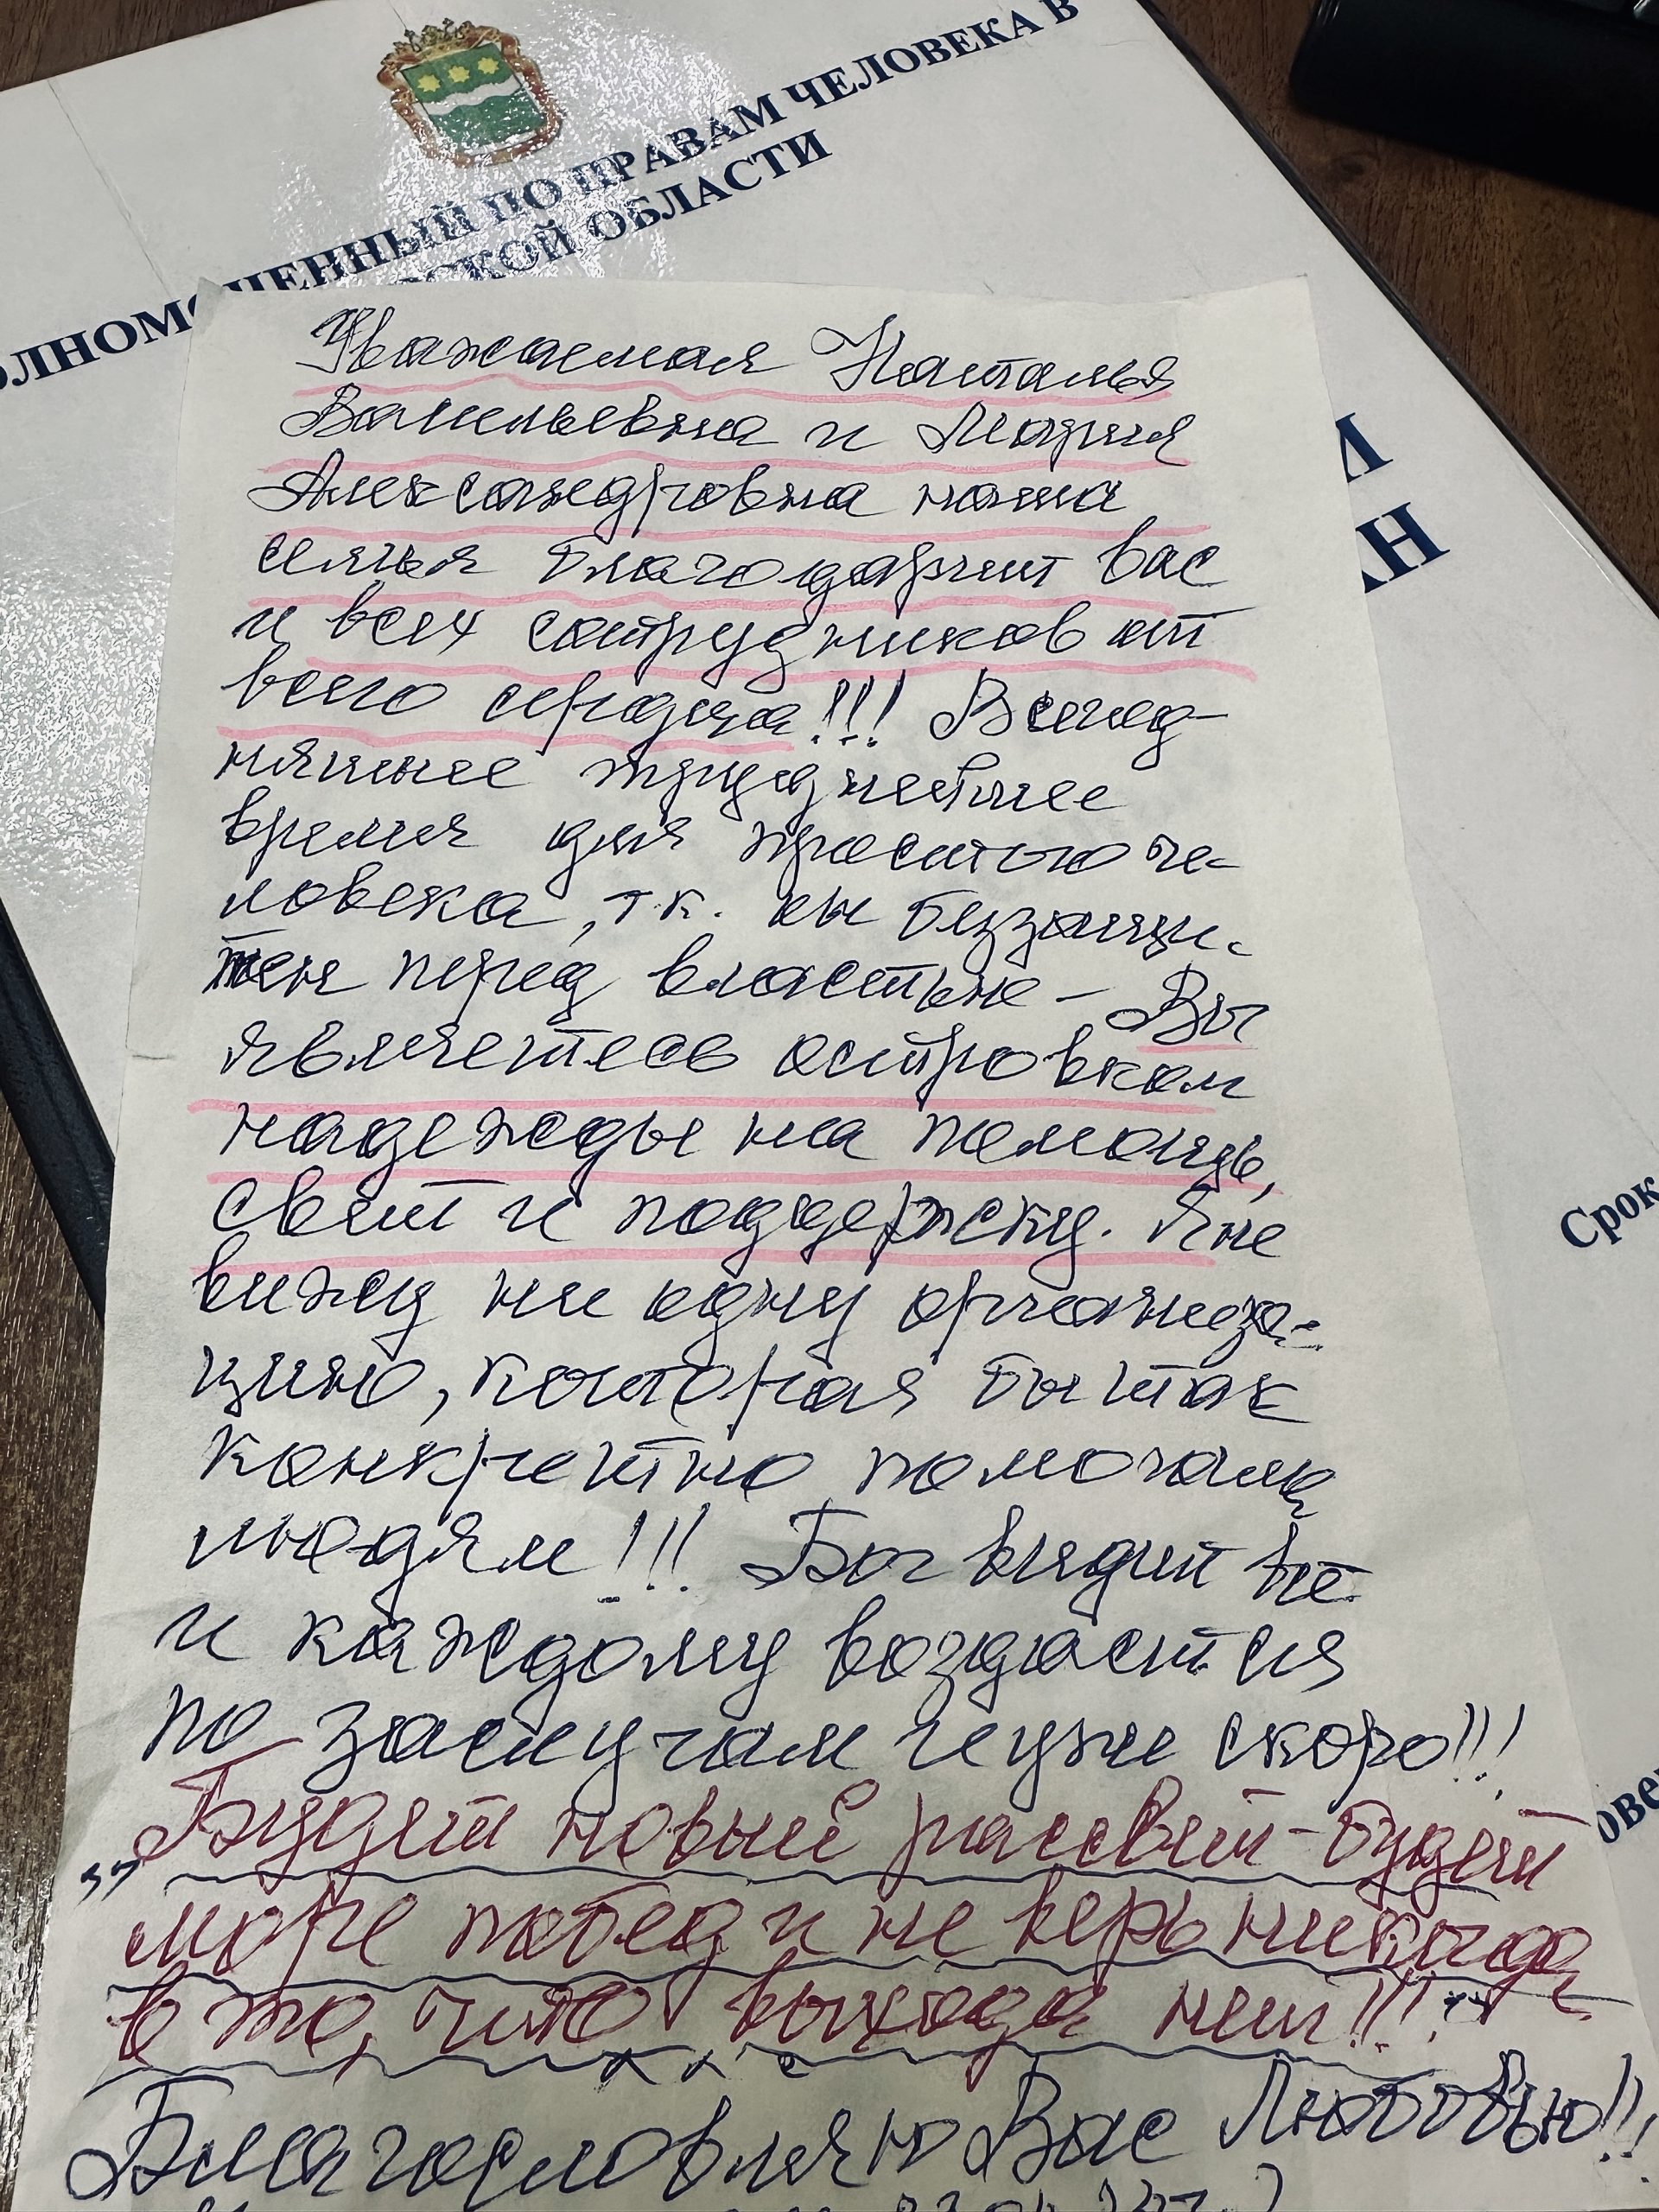 ОЛНОМОЧЕННЫЙ ПО ПРАВАМ ЧЕЛОВЕКА В
СКОЙ ОБЛАСТИ
Уважаемая Наталья
Васильевна и Мария
Александровна наша
семья благодарит вас
и всех сотрудников от
всего сердца!!! В сегод-
няшнее труднейшее
время для простого че-
ловека, т.к. он беззащи-
тен перед властью - Вы
являетесь островком
надежды на помощь,
свет и поддержку. Я не
вижу ни одну организа-
цию, которая бы так
конкретно помогала
людям!!! Бог видит всё
и каждому воздастся
по заслугам и уже скоро!!!
"Будет новый рассвет - будет
море побед и не верь никогда
в то, что выхода нет!!!"
Благословляю Вас Любовью!!!
М
АН
Срок
ове